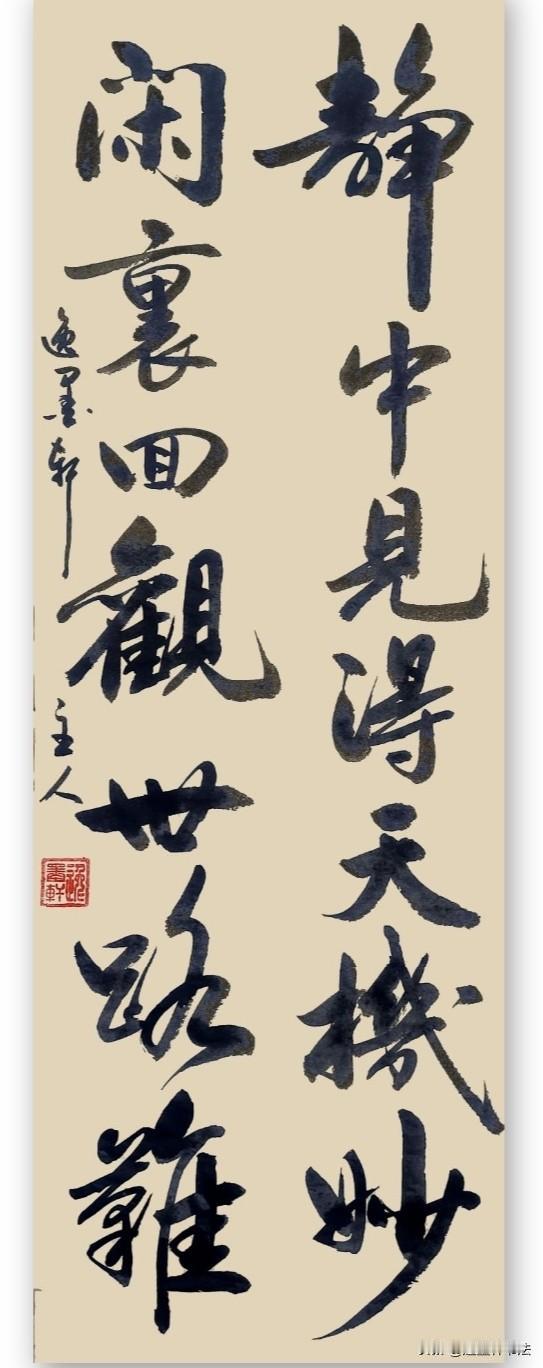 静中見得天機妙
闲裏回觀世路難
逸墨軒
主人